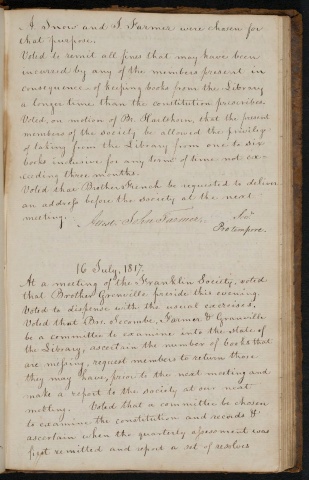 A Snow and J Farmer were chosen for
that purpose.
Voted to remit all fines that may have been
incurred by any of the members present in
consequence of keeping books from the Library
a longer time than the constitution prescribes.
Voted, on motion of Br. that the present
members of the society be allowed the privilege
of taking from the Library from one to six
books inclusive for any term of time not ex-
ceeding three months.
Voted that Brother French be requested to deliver
an address before the society at the next
meeting.
Attest John Farmer, Sec'y
Protempore.
16 July, 1817.
At a meeting of the Franklin Society, voted
that Brother Granville preside this evening.
Voted to dispense with the usual exercises.
Voted that Brs. Secombe, Farmer & Granville
be a committee to examine into the state of
the Library, ascertain the number of books that
are missing, request members to return those
they may have, prior to the next meeting and
make a report to the society at our next
meeting. Voted that a committee be chosen
to examine the constitution and records &
ascertain when the quarterly assessment was
first remitted and report a set of resolves